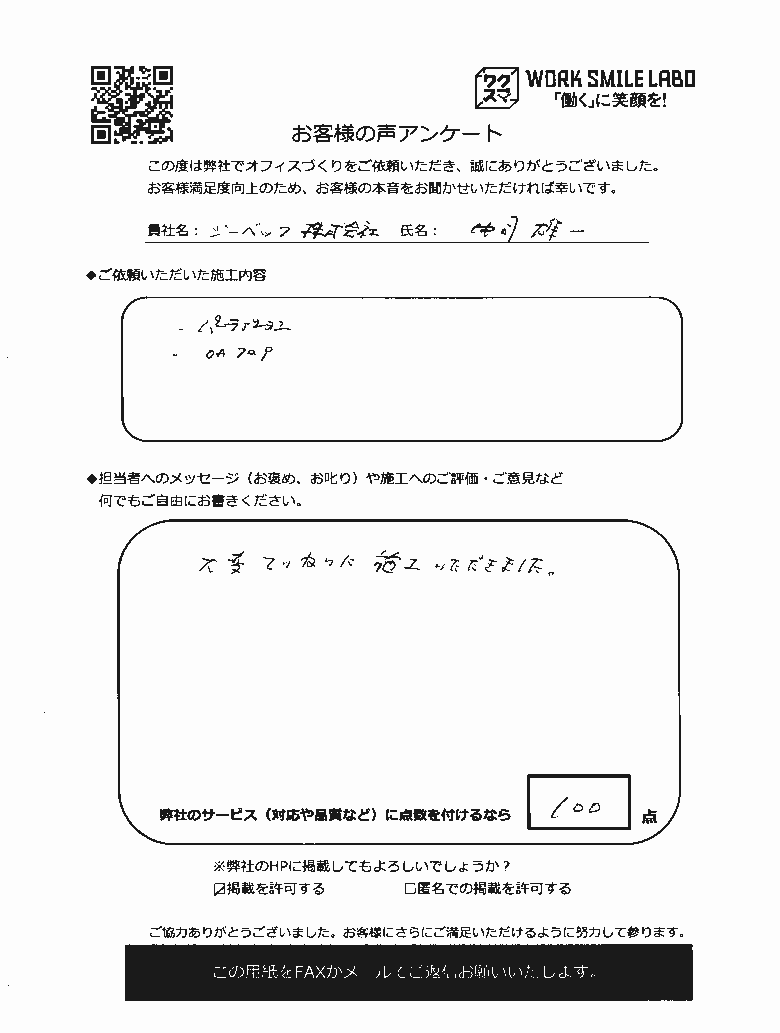 ワクスマ WORK SMILE LABO
「働く」に笑顔を!
お客様の声アンケート
この度は弊社でオフィスづくりをご依頼いただき、誠にありがとうございました。
お客様満足度向上のため、お客様の本音をお聞かせいただければ幸いです。
貴社名: 株式会社 氏名: 雄一
◆ご依頼いただいた施工内容
- OA フロア
◆担当者へのメッセージ(お褒め、お叱り)や施工へのご評価・ご意見など
何でもご自由にお書きください。
大変 ていねいに 施工 いただきました。
弊社のサービス(対応や品質など)に点数を付けるなら 100 点
※弊社のHPに掲載してもよろしいでしょうか?
☑掲載を許可する □匿名での掲載を許可する
ご協力ありがとうございました。お客様にさらにご満足いただけるように努力して参ります。
この用紙をFAXかメールでご返信お願いいたします。